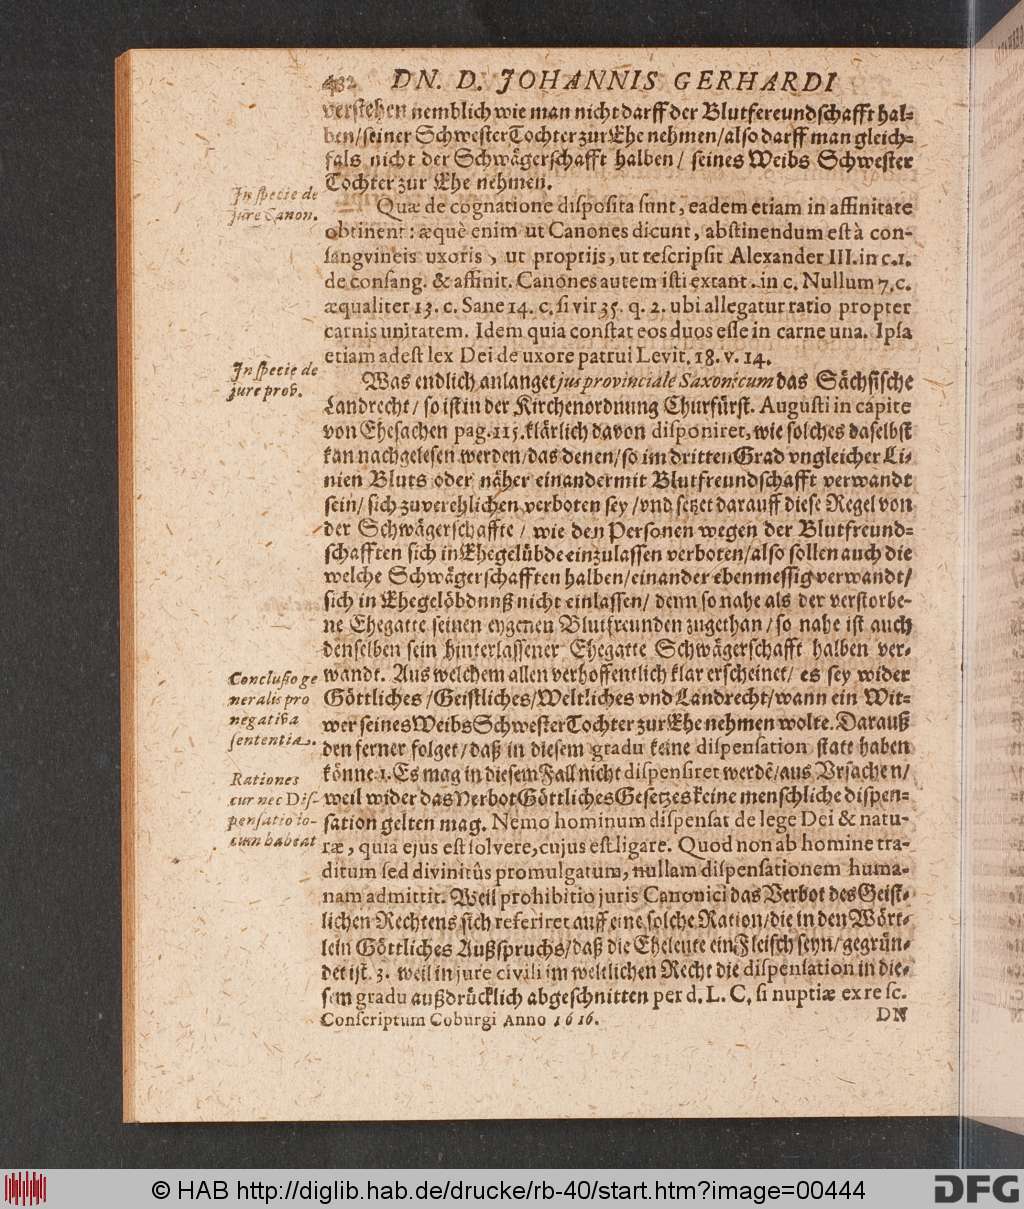 432 DN. D. JOHANNIS GERHARDI
verstehen nemblich wie man nicht darff der Blutfereundschafft hal⸗
ben/seiner Schwester Tochter zur Ehe nehmen/also darff man gleich⸗
fals nicht der Schwägerschafft halben/ seines Weibs Schwester
Tochter zur Ehe nehmen.
In specie de
jure Canon.
Quæ de cognatione disposita sunt, eadem etiam in affinitate
obtinent: æquè enim ut Canones dicunt, abstinendum est à con-
sangvineis uxoris, ut proprijs, ut rescripsit Alexander III. in c. 1.
de consang. & affinit. Canones autem isti extant. in c. Nullum 7. c.
æqualiter 13. c. Sane 14. c. si vir 35. q. 2. ubi allegatur ratio propter
carnis unitatem. Idem quia constat eos duos esse in carne una. Ipsa
etiam adest lex Dei de uxore patrui Levit. 18. v. 14.
In specie de
jure prov.
Was endlich anlanget jus provinciale Saxonicum das Sächsische
Landrecht/ so ist in der Kirchenordnung Churfürst. Augusti in capite
von Ehesachen pag. 115. klärlich davon disponiret, wie solches daselbst
kan nachgelesen werden/das denen/so im dritten Grad vngleicher Li⸗
nien Bluts oder näher einander mit Blutfreundschafft verwandt
sein/ sich zuverehlichen verboten sey/vnd setzet darauff diese Regel von
der Schwägerschaffte/ wie den Personen wegen der Blutfreund⸗
schafften sich in Ehegelübde einzulassen verboten/also sollen auch die
welche Schwägerschafften halben/einander ebenmessig verwandt/
sich in Ehegelöbdnuß nicht einlassen/ denn so nahe als der verstorbe⸗
ne Ehegatte seinen eygenen Blutfreunden zugethan/so nahe ist auch
denselben sein hinterlassener Ehegatte Schwägerschafft halben ver⸗
wandt. Aus welchem allen verhoffentlich klar erscheinet/ es sey wider
Göttliches/Geistliches/Weltliches vnd Landrecht/wann ein Wit⸗
wer seines Weibs Schwester Tochter zur Ehe nehmen wolte. Darauß
den ferner folget/daß in diesem gradu keine dispensation statt haben
Conclusio ge
neralis pro
negativa
sententia.
könne. 1. Es mag in diesem Fall nicht dispensiret werdẽ/aus Vrsachen/
weil wider das Verbot Göttliches Gesetzes keine menschliche dispen⸗
sation gelten mag. Nemo hominum dispensat de lege Dei & natu-
ræ, quia ejus est solvere, cujus est ligare. Quod non ab homine tra-
Rationes
cur nec Dis-
pensatio lo-
cum habeat
ditum sed divinitùs promulgatum, nullam dispensationem huma-
nam admittit. Weil prohibitio juris Canonici das Verbot des Geist⸗
lichen Rechtens sich referiret auff eine solche Ration/die in den Wört⸗
lein Göttliches Außspruchs/daß die Eheleute ein Fleisch seyn/gegrün⸗
det ist. 3. weil in jure civili im weltlichen Recht die dispensation in die⸗
sem gradu außdrücklich abgeschnitten per d. L. C. si nuptiæ ex re sc.
Conscriptum Coburgi Anno 1616.
DN
© HAB http://diglib.hab.de/drucke/rb-40/start.htm?image=00444
DFG